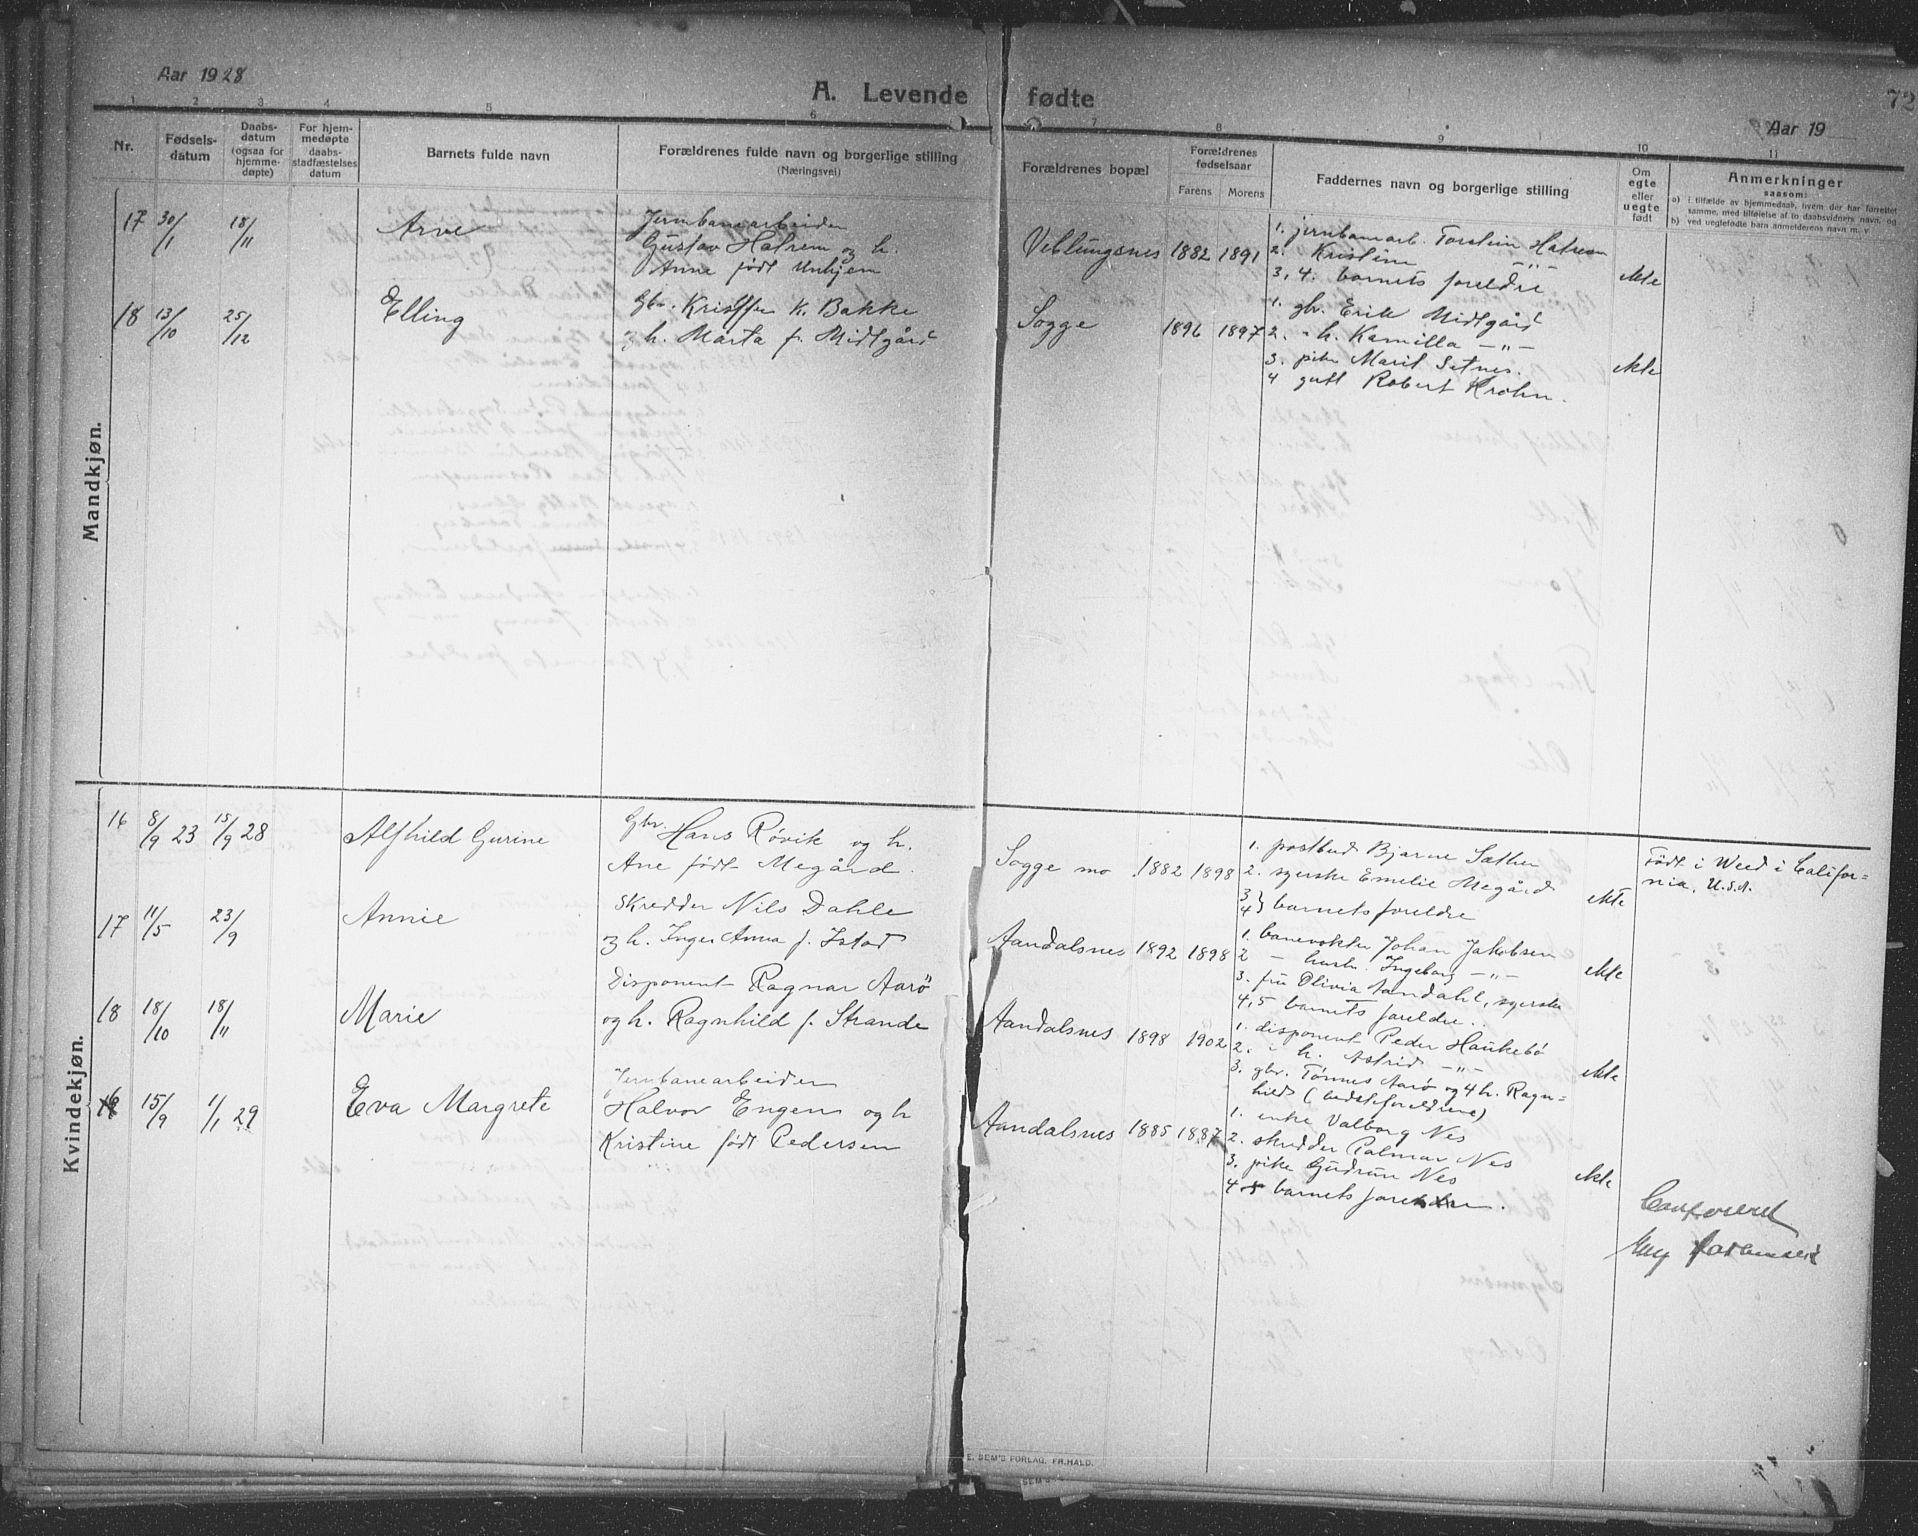 Aar 1928
A. Levende fødte
72
Aar 19
1 2 3 4 5 6 7 8 9 10 11
Nr.
Fødsels-
datum
Daabs-
datum
(ogsaa for
hjemme-
døpte)
For hjem-
medøpte
daabs-
stadfæstelses
datum
Barnets fulde navn
Forældrenes fulde navn og borgerlige stilling
(Næringsvei)
Forældrenes bopæl
Forældrenes
fødselsaar
Farens Morens
Faddernes navn og borgerlige stilling
Om
egte
eller
uegte
født
Anmerkninger
saasom:
a) i tilfælde av hjemmedaab, hvem der har forrettet
samme, med tilføielse af to daabsvidners navn, og
b) ved uegtefødte barn anmelderens navn m. v.
Mandkjøn.
17 30/1 18/11 Arve
Jernbanearbeider
Gustav Hatrem og h.
Anne født Unhjem
Veblungsnes 1882 1891
1. jernbanearb. Torstein Hatrem
2. Kristine —"—
3, 4. barnets foreldre
ekte
18 13/10 25/12 Elling
Gbr. Kristffer K. Bakke
og h. Marta f. Midtgård
Sogge 1896 1897
1. gbr. Erik Midtgård
2. - h. Kamilla —"—
3. pike Marit Setnes.
4 gutt Robert Krohn.
ekte
Kvindekjøn.
16 8/9 23 15/9 28 Alfhild Gurine
Gbr. Hans Røvik og h.
Ane født Megård.
Sogge mo 1882 1898
1. postbud Bjarne Sæther
2. syerske Emelie Megård
3
4} barnets foreldre
ekte
Født i Weed i Califor=
nia, U.S.A.
17 11/5 23/9 Annie
Skredder Nils Dahle
og h. Inger Anna f. Istad
Aandalsnes 1892 1898
1. banevokter Johan Jakobsen
2 — hustr. Ingeborg —"—
3. fru Olivia Aandahl, syerske
4,5 barnets foreldre..
ekte
18 18/10 18/11 Marie
Disponent Ragnar Aarö
og h. Ragnhild f. Strande
Aandalsnes 1898 1902
1. disponent Peder Haukebø
2. - h. Astrid —"—
3. gbr. Tønnes Aarø og 4 h. Ragn=
hild (bedsteforeldrene)
ekte
15/9 11/1 29 Eva Margrete
Jernbanearbeider
Halvor Engen og h
Kristine født Pedersen
Aandalsnes 1885 1887
1. enke Valborg Nes
2. skredder Palmar Nes
3. pike Gudrun Nes
4 5 barnets foreldre.
ekte
Confereret
E. SEM'S FORLAG, FR.HALD.
SEM'S